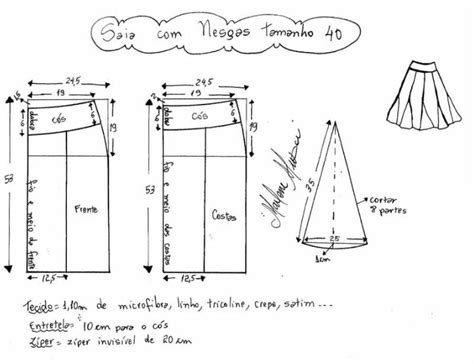 Saia com Nesgas tamanho 40
24,5
19
1,5
dobra
cós
6
19
53
fio e meio da frente
Frente
12,5
24,5
19
dobra
cós
6
19
53
fio e meio das costas
Costas
12,5
Marlene Mukai
35
25
1cm
cortar
8 partes
Tecido = 1,10m de microfibra, linho, tricoline, crepe, satim ...
Entretela = 10 cm para o cós
Zíper = zíper invisível de 20 cm